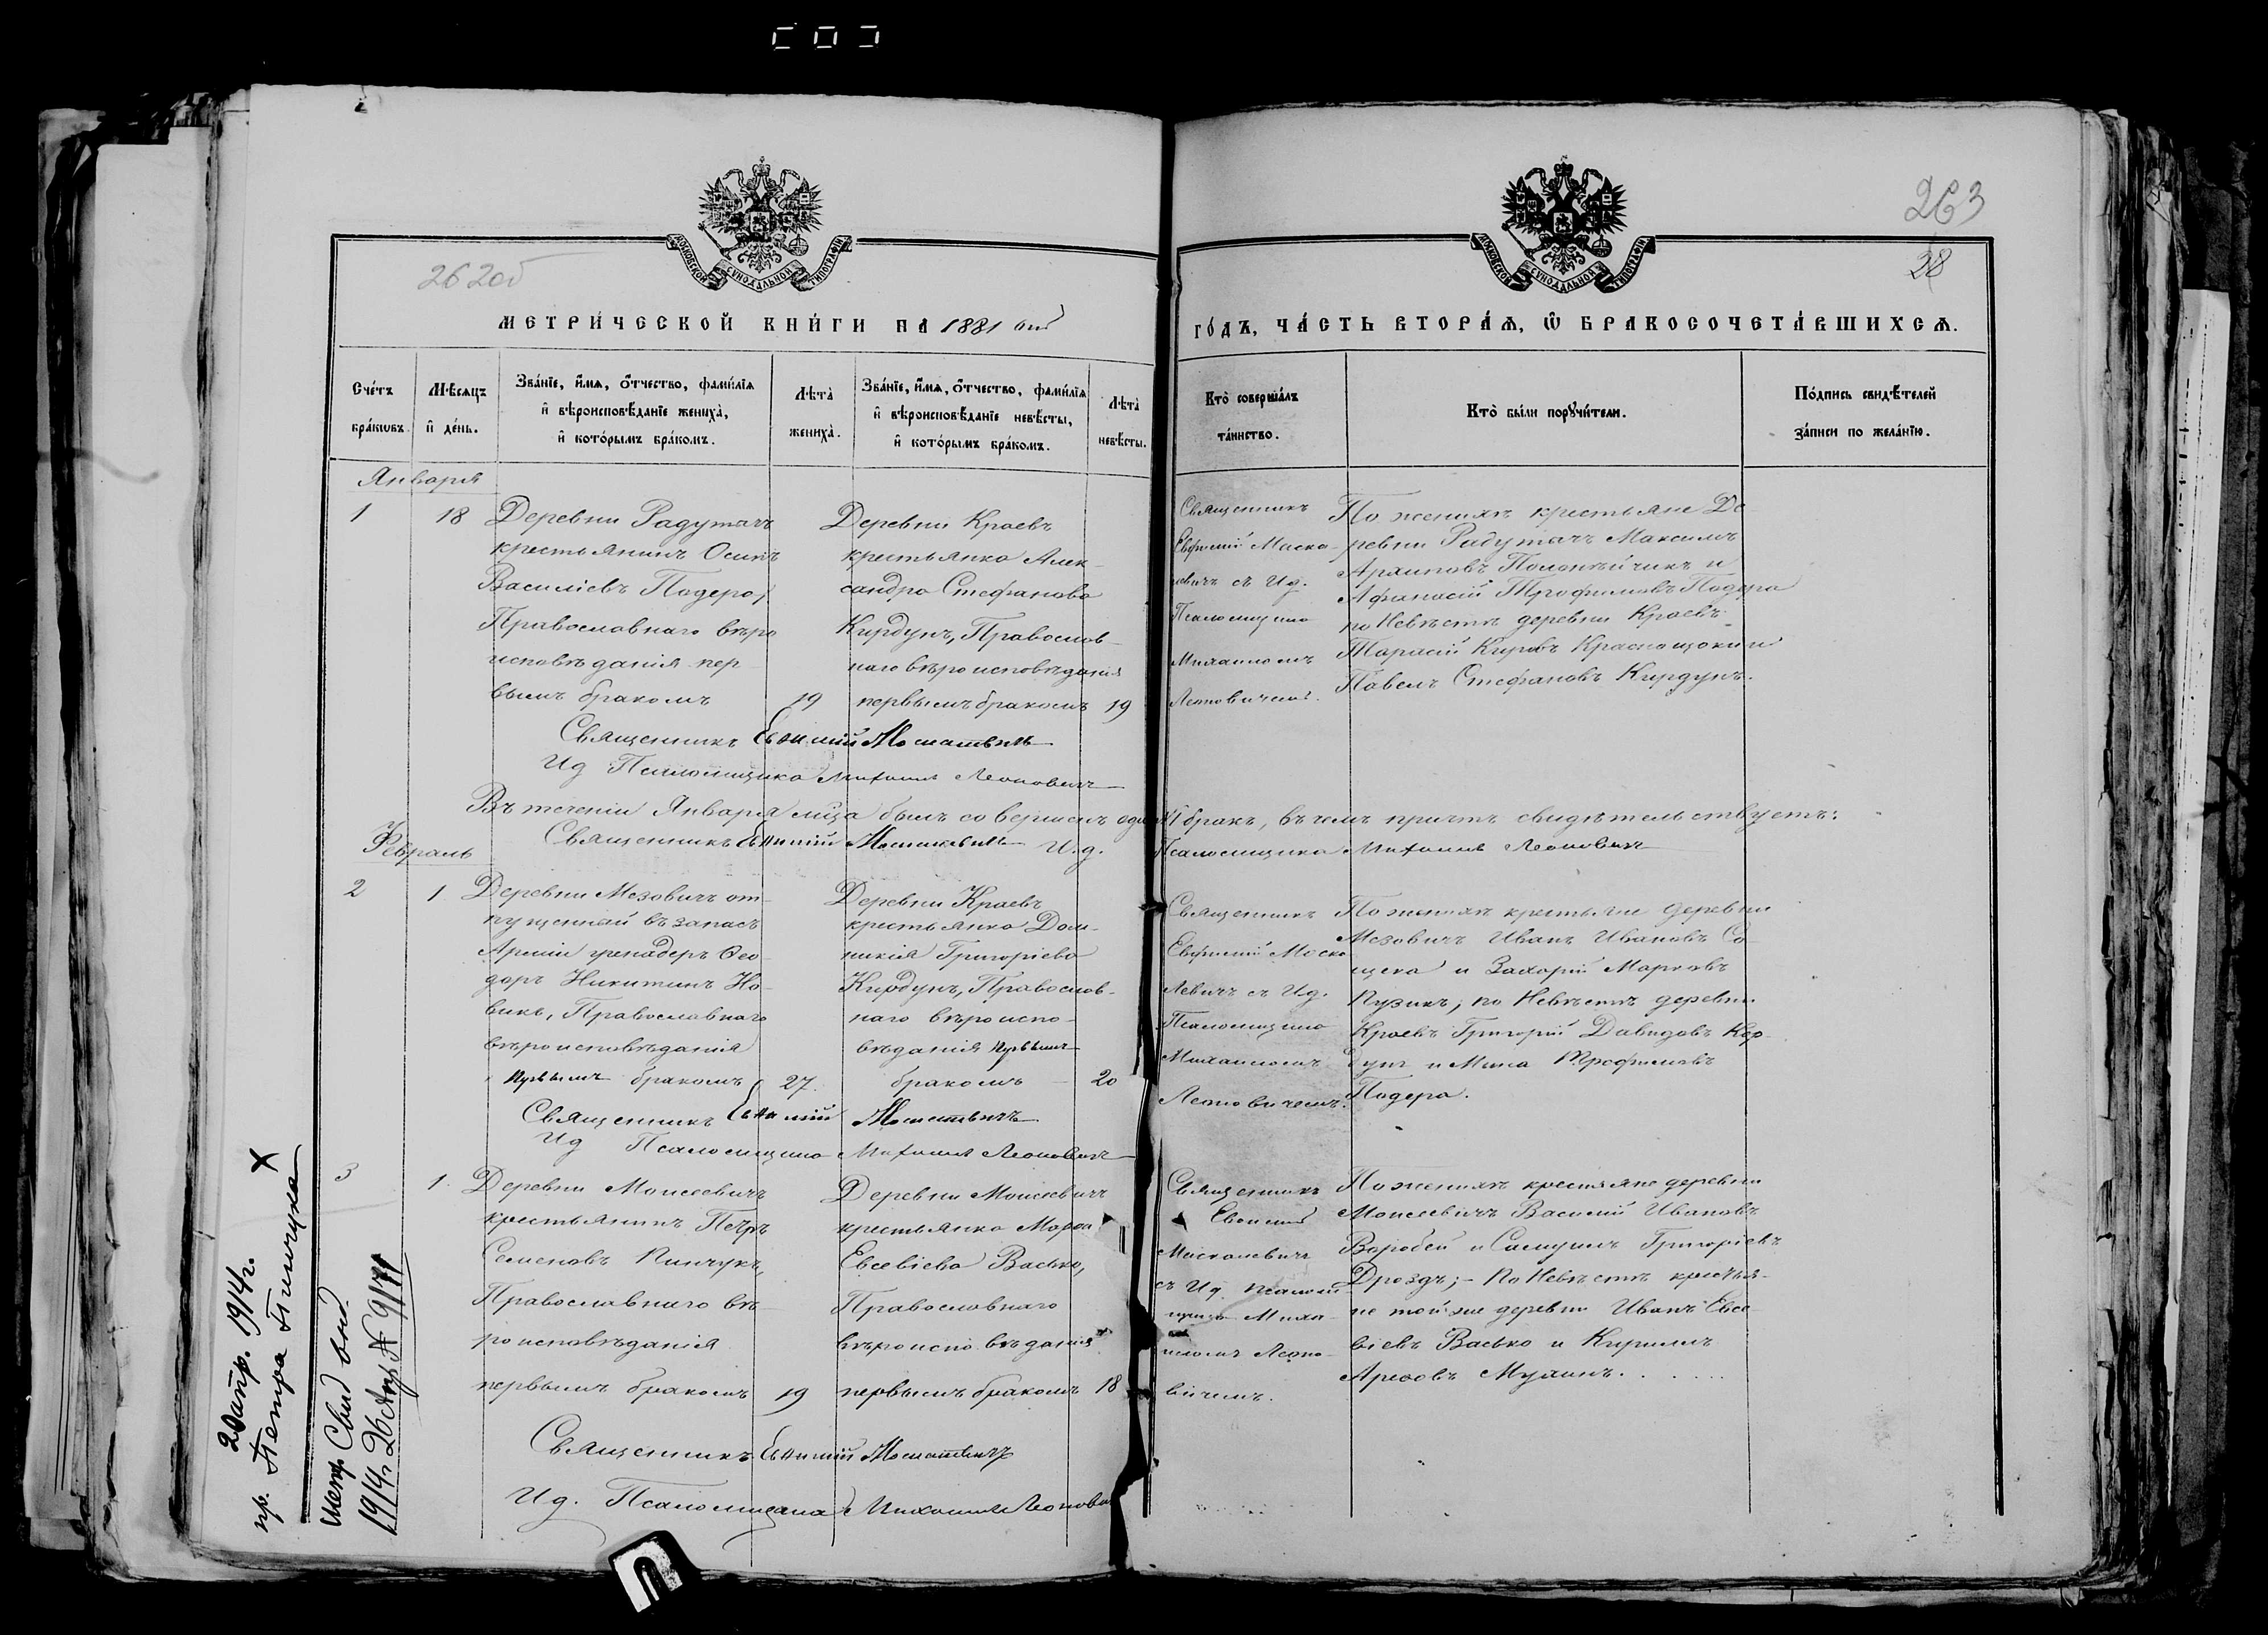 263
262об
28
МОСКОВСКОЙ СѴНОДАЛЬНОЙ ТИПОГРАФІИ
МОСКОВСКОЙ СѴНОДАЛЬНОЙ ТИПОГРАФІИ
МЕТРИ́ЧЕСКОЙ КНИ́ГИ НА 1881 ый
ГО́ДЪ, ЧА́СТЬ ВТОРА́Ѧ, Ѽ БРАКОСОЧЕТА́ВШИХСѦ.
Сче́тъ бра́кѡвъ.
Мѣ́сѧцъ и҆ де́нь.
Зва́нїе, и҆́мѧ, ѻ҆́тчество, фами́лїѧ
и҆ вѣроисповѣ́данїе жениха̀,
и҆ кото́рымъ бра́комъ.
Лѣта̀ жениха̀.
Зва́нїе, и҆́мѧ, ѻ҆́тчество, фами́лїѧ
и҆ вѣроисповѣ́данїе невѣ́сты,
и҆ кото́рымъ бра́комъ.
Лѣта̀ невѣ́сты.
Кто̀ соверша́лъ та́инство.
Кто̀ бы́ли порꙋчи́тели.
По́дпись свидѣ́телей
за́писи по жела́нїю.
Января
1
18
Деревни Радутичъ
крестьянинъ Осипъ
Василіевъ Подера,
Православнаго вѣро
исповѣданія пер-
вымъ бракомъ
19
Деревни Краевъ
крестьянка Алек-
сандра Стефанова
Кирдунъ, Православ-
наго вѣроисповѣданія
первымъ бракомъ
19
Священникъ
Евфимій Маска-
левичъ съ И.д.
Псаломщика
Михаиломъ
Леоновичемъ.
По женихѣ крестьяне Де
ревни Радутичъ Максимъ
Архиповъ Полонейчикъ и
Афанасій Трофимовъ Подера
по Невѣстѣ деревни Краевъ
Тарасій Кировъ Краснощокій и
Павелъ Стефановъ Кирдунъ.
Священникъ Евѳимій Москалевичъ
Ид Псаломщика Михаилъ Леоновичъ
Въ теченіи Января м-ца былъ совершенъ одинъ 1 бракъ, въ чемъ причтъ свидѣтельствуетъ:
Священникъ Евѳимій Москалевичъ И.д. Псаломщика Михаилъ Леоновичъ
Февраль
2
1
Деревни Мезовичъ от-
пущенный въ запасъ
Арміи гренадеръ Ѳео
доръ Никитинъ Но-
викъ, Православнаго
вѣроисповѣданія
первымъ бракомъ
27.
Деревни Краевъ
крестьянка Дом-
никія Григоріева
Кирдунъ, Православ-
наго вѣроиспо-
вѣданія первымъ
бракомъ
20
Священникъ
Евфимій Моска
левичъ съ И.д.
Псаломщика
Михаиломъ
Леоновичемъ.
По женихѣ крестьяне деревни
Мезовичъ Иванъ Ивановъ Со-
щека и Захарій Марковъ
Пузикъ, по Невѣстѣ деревни
Краевъ Григорій Давидовъ Кир-
дунъ и Мина Трофимовъ
Подера.
Священникъ Евѳимій Москалевичъ
Ид Псаломщика Михаилъ Леоновичъ
3
1.
Деревни Моисеевичъ
крестьянинъ Петръ
Семеновъ Пинчукъ,
Православнаго вѣ
роисповѣданія
первымъ бракомъ
19
Деревни Моисеевичъ
крестьянка Марѳа
Евсевіева Васько,
Православнаго
вѣроисповѣданія
первымъ бракомъ
18
Священникъ
Евѳимій
Москалевичъ
съ Ид. Псалом-
щика Миха-
иломъ Леоно-
вичемъ.
По женихѣ крестьяне деревни
Моисеевичъ Василій Ивановъ
Воробей и Самуилъ Григоріевъ
Дроздъ; - По Невѣстѣ крестья-
не той же деревни Иванъ Евсе
віевъ Васько и Кириллъ
Арефовъ Мухинъ.
Священникъ Евѳимій Москалевичъ
И.д. Псаломщика Михаилъ Леонович
20 апр. 1914 г.
пр. Петра Пинчука X
Метр. Свид выд.
1914 г. 26 Апр № 97